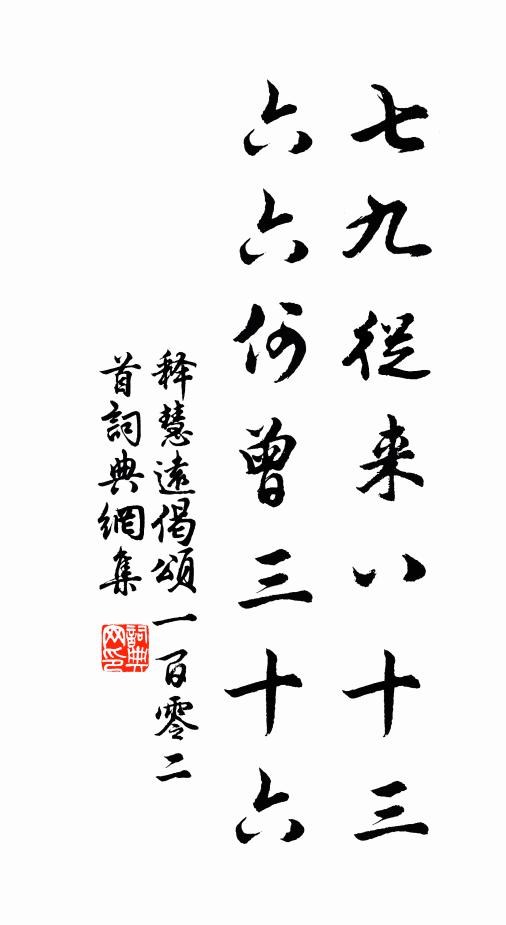 七九從来八十三
六六何曾三十六
释慧遠偈頌一百零二
首詞典網集
詞典网印